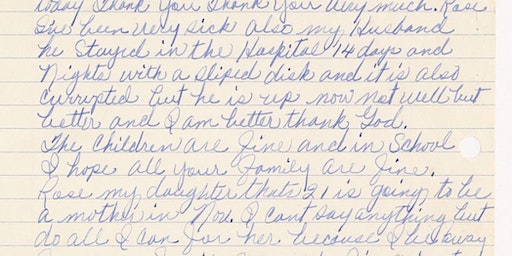 today Thank You Thank Your Very much. Rose
I've been very sick also my Husband
he Stayed in the Hospital 14 days and
Nights with a sliped disk and it is also
currupted but he is up now not well but
better and I am better thank God.
The Children are fine and in School
I hope all your Family are fine.
Rose my daughter thats 21 is going to be
a mother in Nov. I cant say anything but
do all I can for her because I